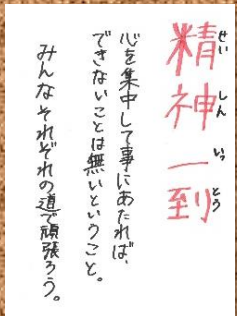 精神一到
せいしんいっとう
心を集中して事にあたれば、
できないことは無いということ。
みんなそれぞれの道で頑張ろう。